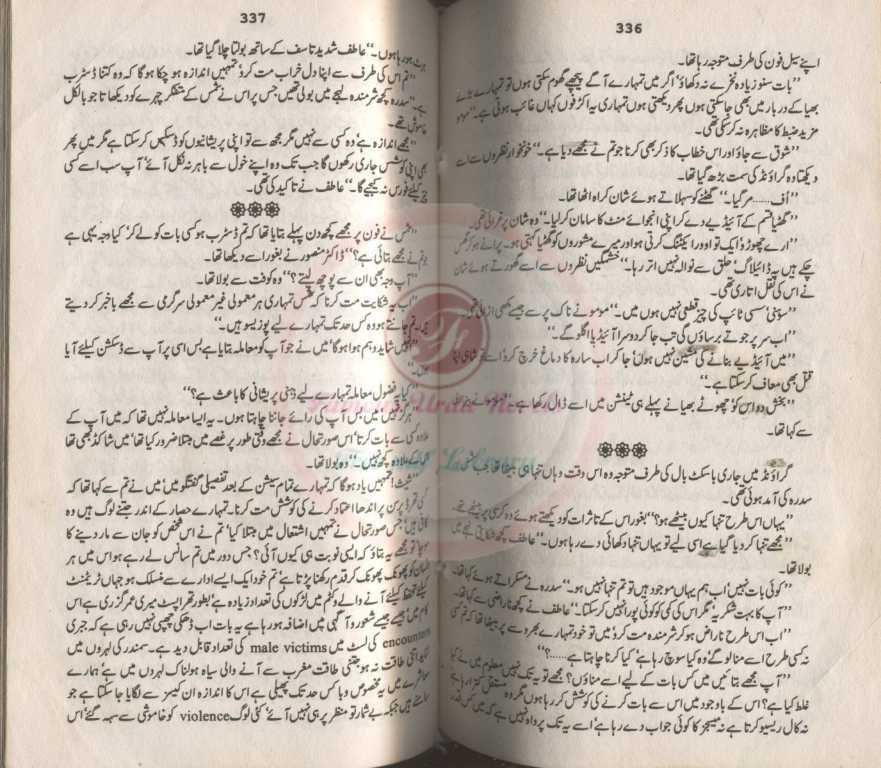 336
اپنے سیل فون کی طرف متوجہ رہا تھا۔
”بات سنو زیادہ نخرے نہ دکھاؤ‘ اگر میں تمہارے آگے پیچھے گھوم سکتی ہوں تو تمہارے بڑے
بھیا کے دربار میں بھی جا سکتی ہوں پھر دیکھتی ہوں تمہاری یہ اکڑفوں کہاں غائب ہوتی ہے۔“ مومو
مزید ضبط کا مظاہرہ نہ کرسکی تھی۔
”شوق سے جاؤ اور اس خطاب کا ذکر بھی کرنا جو تم نے مجھے دیا ہے۔“ خونخوار نظروں سے اسے
دیکھتا وہ گراؤنڈ کی سمت بڑھ گیا تھا۔
”اُف...... مر گیا۔“ گھٹنے کو سہلاتے ہوئے شان کراہ اٹھا تھا۔
”گھٹیا قسم کے آئیڈیے دے کر اپنی انجوائے منٹ کا سامان کرلیا۔“ وہ شان پر غرائی تھی۔
”ارے چھوڑو‘ ایک تو اوور ایکٹنگ کرتی ہو اور میرے مشوروں کو گھٹیا کہتی ہو۔ پرانے ہو
چکے ہیں یہ ڈائیلاگ‘ حلق سے نوالہ نہیں اتر رہا۔“ خشمگیں نظروں سے اسے گھورتے ہوئے شان
نے اس کی نقل اتاری تھی۔
”سوہنی‘ سسی ٹائپ کی چیز قطعی نہیں ہوں میں۔“ مومو نے ناک پر سے جیسے مکھی اڑائی تھی۔
”اب سر پر جوتے برساؤں گی تب جا کر دوسرا آئیڈیا اگلو گے۔“
”میں آئیڈیے بنانے کی مشین نہیں ہوں‘ جا کر اب سارہ کا دماغ خرچ کرو‘ اسے تو شاہی اپنا
قتل بھی معاف کرسکتا ہے۔“
”بخش دو اس کو‘ چھوٹے بھیا نے پہلے ہی ٹینشن میں اسے ڈال رکھا ہے۔“ مومو نے
سے کہا تھا۔
گراؤنڈ میں جاری باسکٹ بال کی طرف متوجہ وہ اس وقت وہاں تنہا ہی بیٹھا تھا جب
سدرہ کی آمد ہوئی تھی۔
”یہاں اس طرح تنہا کیوں بیٹھے ہو؟“ بغور اس کے تاثرات کو دیکھتے ہوئے وہ کرسی پر بیٹھے تھے۔
”مجھے تنہا کردیا گیا ہے اسی لیے تو یہاں تنہا دکھائی دے رہا ہوں۔“ عاطف کچھ شکایتی لہجے میں
بولا تھا۔
”کوئی بات نہیں‘ اب ہم یہاں موجود ہیں تو تم تنہا نہیں ہو۔“ سدرہ نے مسکراتے ہوئے کہا تھا۔
”آپ کا بہت شکریہ‘ مگر اس کی کمی کو کوئی پورا نہیں کرسکتا۔“ عاطف نے کچھ ناراضی سے کہا تھا۔
”اب اس طرح ناراض ہو کر شرمندہ مت کرو‘ میں تو خود تمہارے بھروسے پر بیٹھا تھا کہ تم کسی
نہ کسی طرح اسے منا لو گے‘ وہ کیا سوچ رہا ہے‘ کیا کرنا چاہتا ہے......؟“
”آپ مجھے بتائیں میں کس بات کے لیے اسے مناؤں؟ مجھے تو یہ تک نہیں معلوم میں نے کیا
غلط کیا ہے؟ اس کے باوجود میں اس سے بات کرنے کی کوشش کر رہا ہوں مگر وہ
نہ کال ریسیو کرتا ہے نہ میسجز کا کوئی جواب دے رہا ہے‘ اسے یہ تک پرواہ نہیں ہے کہ میں کس قدر
337
ہرٹ ہو رہا ہوں۔“ عاطف شدید تاسف کے ساتھ بولتا چلا گیا تھا۔
”تم اس کی طرف سے اپنا دل خراب مت کرو‘ تمہیں اندازہ ہو چکا ہوگا کہ وہ کتنا ڈسٹرب
ہے۔“ سدرہ کچھ شرمندہ لہجے میں بولی تھیں جس پر اس نے شمس کے متفکر چہرے کو دیکھا تھا جو بالکل
خاموش تھے۔
”مجھے اندازہ ہے‘ وہ کسی سے نہیں مگر مجھ سے تو اپنی پریشانیوں کو ڈسکس کرسکتا ہے مگر میں پھر
بھی اپنی کوشش جاری رکھوں گا جب تک وہ اپنے خول سے باہر نہ نکل آئے‘ آپ سب اسے کسی
چیز کیلئے فورس نہ کیجیے گا۔“ عاطف نے تاکید کی تھی۔
”شمس نے فون پر مجھے کچھ دن پہلے بتایا تھا کہ تم ڈسٹرب ہو کسی بات کو لے کر‘ کیا وجہ یہی ہے
جو تم نے مجھے بتائی ہے؟“ ڈاکٹر منصور نے بغور اسے دیکھا تھا۔
”آپ وجہ بھی ان سے پوچھ لیتے؟“ وہ کوفت سے بولا تھا۔
”اب یہ شکایت مت کرنا کہ شمس تمہاری ہر معمولی غیر معمولی سرگرمی سے مجھے باخبر کر دیتے
ہیں۔ تم جانتے ہو وہ کس حد تک تمہارے لیے پوزیسو ہیں۔“
”انہیں شاید وہم ہوا ہوگا‘ میں نے جو آپ کو معاملہ بتایا ہے بس اسی پر آپ سے ڈسکشن کیلئے آیا
ہوں۔“
”کیا یہ فضول معاملہ تمہارے لیے ذہنی پریشانی کا باعث ہے؟“
”ہرگز نہیں‘ میں بس آپ کی رائے جاننا چاہتا ہوں۔ یہ ایسا معاملہ نہیں تھا کہ میں آپ کے
علاوہ کسی سے بات کرتا‘ اس صورتحال نے مجھے وقتی طور پر غصے میں مبتلا ضرور کیا تھا‘ میں شاکڈ بھی تھا
اس کے علاوہ کچھ نہیں۔“ وہ بولا تھا۔
”شیث! تمہیں یاد ہوگا کہ تمہارے تمام سیشن کے بعد تفصیلی گفتگو میں‘ میں نے تم سے کہا تھا کہ
کسی تھرڈ پرسن پر اندھا اعتماد کرنے کی کوشش مت کرنا۔ تمہارے حصار کے اندر جتنے لوگ ہیں وہ
کافی ہیں‘ جس صورتحال نے تمہیں اشتعال میں مبتلا کیا‘ تم نے اس شخص کو جان سے مار دینے کا
سوچا تو مجھے یہ بتاؤ کہ ایسی نوبت ہی کیوں آئی؟ جس دور میں تم سانس لے رہے ہو اس میں ہر
انسان کو پھونک پھونک کر قدم رکھنا پڑتا ہے‘ تم خود ایک ایسے ادارے سے منسلک ہو جہاں ٹریٹمنٹ
کیلئے تحفظ کیلئے آنے والے وکٹم میں لڑکوں کی تعداد زیادہ ہے‘ بطور تھراپسٹ میری عمر گزری ہے اس
کام میں‘ جیسے جیسے شعور و آگہی میں اضافہ ہو رہا ہے یہ بات اب ڈھکی چھپی نہیں رہی ہے کہ جبری
encounters کی لسٹ میں male victims کی تعداد قابل دید ہے۔ سمندر کی لہروں میں
شاید اتنی طاقت نہ ہو جتنی طاقت مغرب سے آنے والی سیاہ ہولناک لہروں میں ہے‘ ہمارے
معاشرے میں یہ مخصوص وبا کس حد تک پھیلی ہے اس کا اندازہ ان کیسز سے لگایا جا سکتا ہے جو
سامنے ہیں جبکہ بے شمار تو منظر پر ہی نہیں آئے‘ کئی لوگ violence کو خاموشی سے سہہ گئے‘ اس